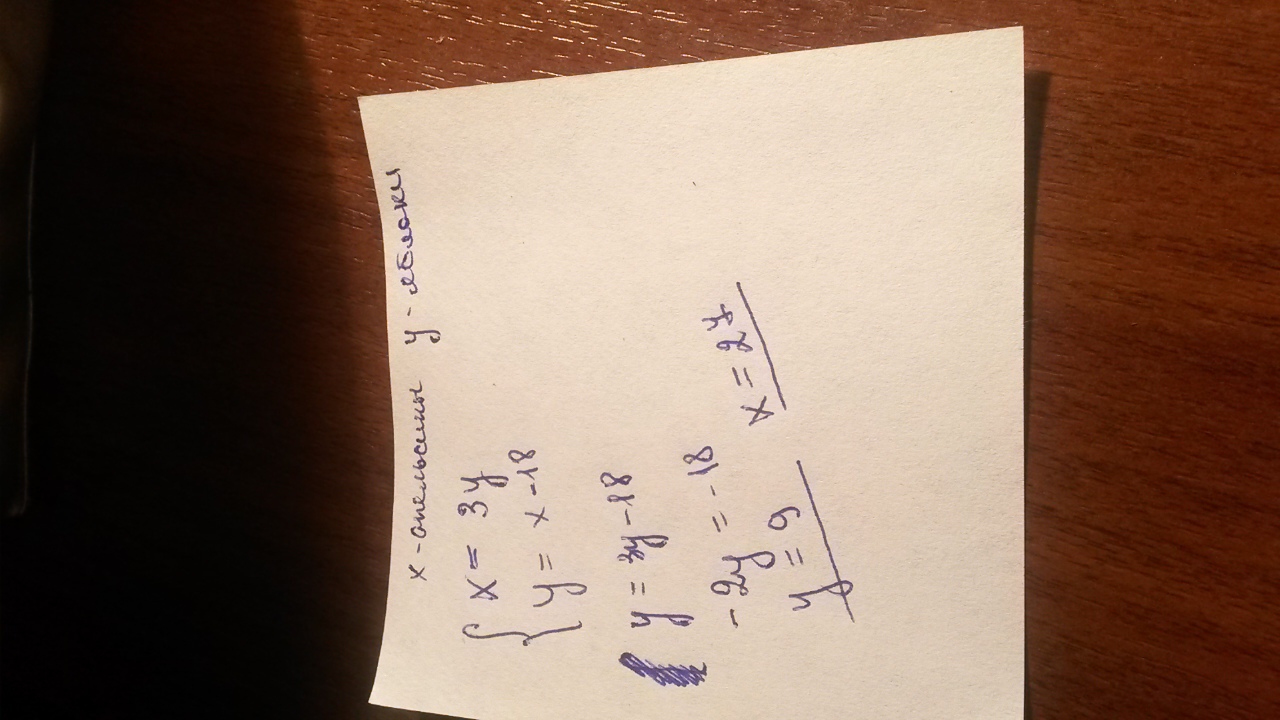 x - апельсины y - яблоки
{ x = 3y
y = x - 18
y = 3y - 18
-2y = -18
y = 9 x = 27